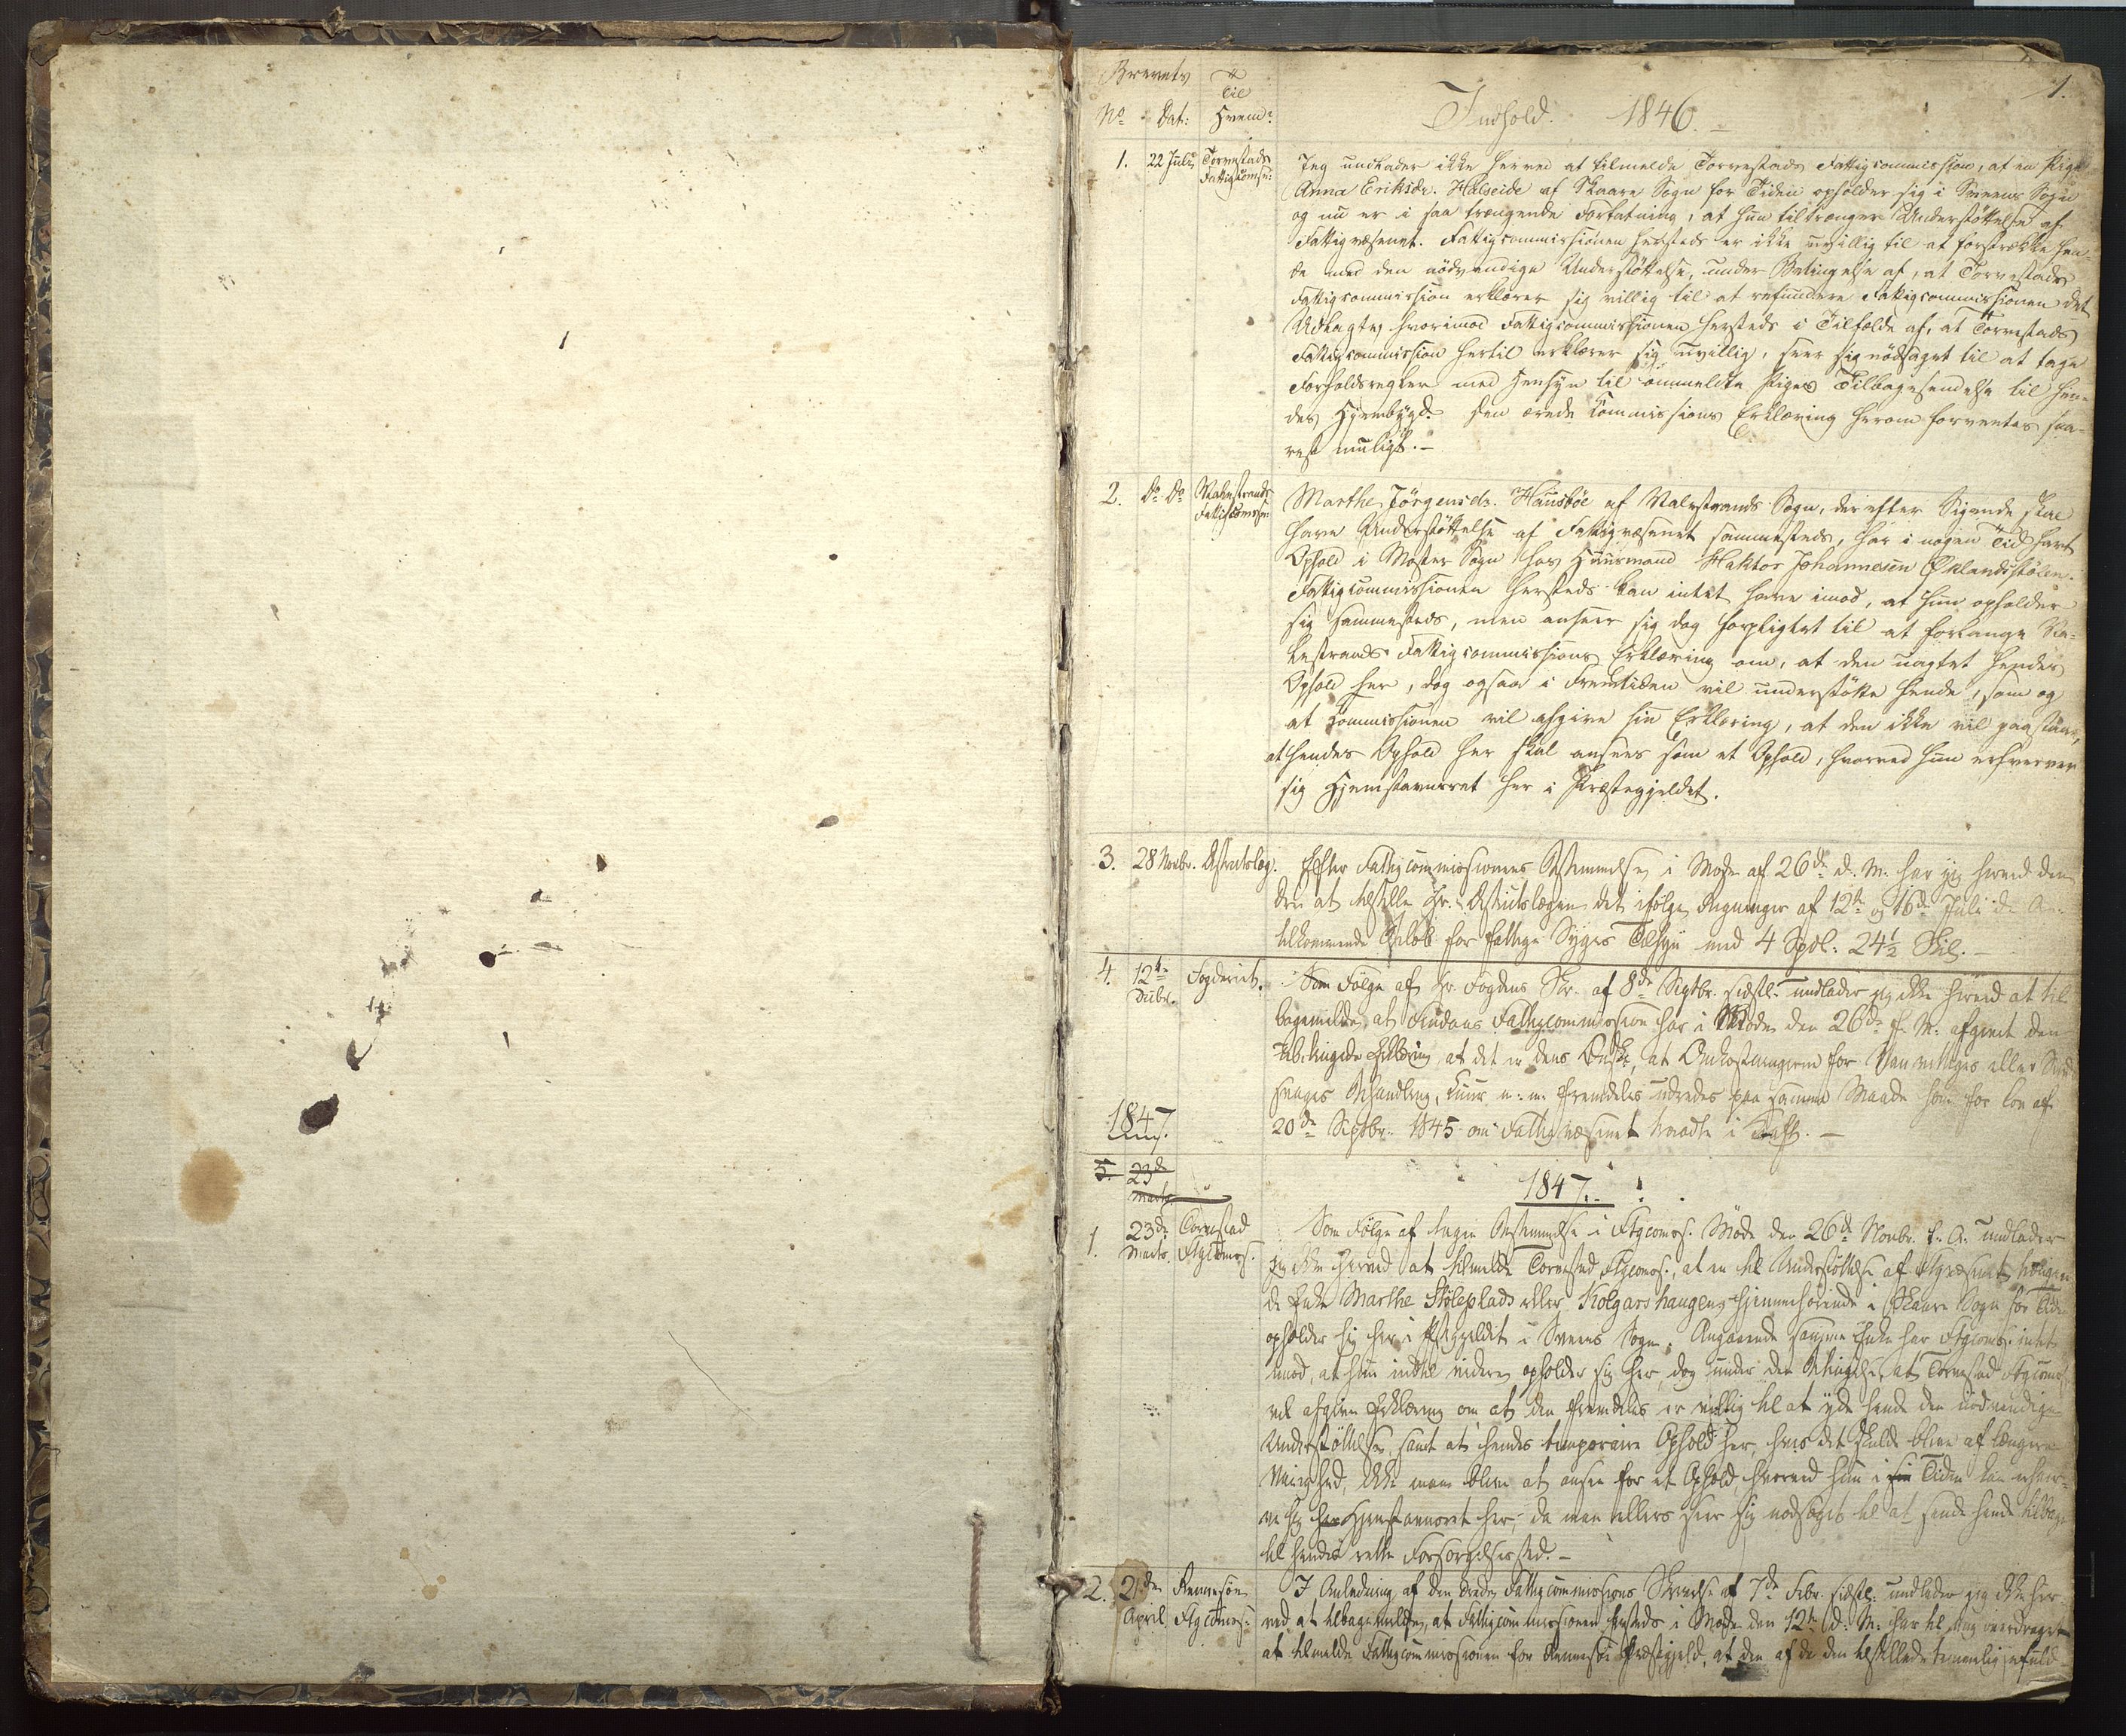 1.
Brevets Til
No. Dat: Hvem? Indhold. 1846.
1. 22 Juli Torvestads Fattigcomsn: Jeg undlader ikke herved at tilmelde Torvestads Fattigcommission, at en Pige
Anna Eriksdr. Halseide af Skaare Sogn for Tiden opholder sig i Sveens Sogn
og nu er i saa trængende Forfatning, at hun tiltrænger Understøttelse af
Fattigvæsenet. Fattigcommissionen hersteds er ikke uvillig til at forstrække hen-
de med den nödvendige Understøttelse, under Betingelse af, at Torvestads
Fattigcommission erklærer sig villig til at refundere Fattigcommissionen det
Udlagte, hvorimod Fattigcommissionen hersteds i Tilfælde af, at Torvestads
Fattigcommission hertil erklærer sig uvillig, seer sig nödsaget til at tage
Forholdsregler med Hensyn til ommeldte Piges Tilbagesendelse til hen-
des Hjembygd. Den ærede Commissions Erklæring herom forventes snar-
est muligt.-
2. Do. Do. Valestrands Fattigcomsn: Marthe Jörgensdr. Hausböe af Valestrands Sogn, der efter Sigende skal
have Understøttelse af Fattigvæsenet sammesteds, har i nogen Tid havt
Ophold i Moster Sogn hos Huusmand Haktor Johannesen Öklandsstölen.
Fattigcommissionen hersteds kan intet have imod, at hun opholder
sig sammesteds, men anseer sig dog forpligtet til at forlange Va-
lestrands Fattigcommissions Erklæring om, at den uagtet hendes
Ophold her, dog ogsaa i Fremtiden vil understøtte hende, som og
at Commissionen vil afgive sin Erklæring, at den ikke vil paastaae,
at hendes Ophold her skal ansees som et Ophold, hvorved hun erhverver
sig Hjemstavnsret her i Præstegjeldet.
3. 28 Novbr. Distriktslæg. Efter Fattigcommissionens Bestemmelse i Møde af 26de d. M. har jeg herved den
Ære at tilstille Hr. Distriktslægen det ifølge Regninger af 12te og 16de Juli d. A.
tilkommende Beløb for fattige Syges Tilsyn med 4 Spdl: 24½ Skil.-
4. 12te Decbr. Fogderiet. Som Følge af Hr. Fogdens Skr. af 8de Septbr. sidstl. undlader jeg ikke herved at til-
bagemelde, at Findaas Fattigcommission har i Møde den 26de f. M. afgivet den
Erklæring, at det er dens Ønske, at Omkostningerne for Vanvittiges eller Sind-
svages Behandling, Kuur m. m. fremdeles udredes paa samme Maade som før Lov af
20de Septbr. 1845 om Fattigvæsenet traadte i Kraft.-
1847
5. 23de Marts
1847.
1. 23de Marts Torvestad Ftgcomss. Som Følge af tagen Bestemmelse i Ftgcomss. Møde den 26de Novbr. f. A. undlader
jeg ikke herved at tilmelde Torvestad Ftgcomss:, at en til Understøttelse af Ftgvæsenet trængen-
de Enke Marthe Stöleplads eller Kolgarshaugen, hjemmehörende i Skaare Sogn for Tiden
opholder sig her i Præstegjeldet i Sveens Sogn. Angaaende samme Enke har Ftgcomss: intet
imod, at hun indtil videre opholder sig her, dog under den Betingelse, at Torvestad Ftgcomss
vil afgive Erklæring om at den fremdeles er villig til at yde hende den nödvendige
Understøttelse, samt at hendes temporaire Ophold her, hvis det skulde blive af længere
Varighed, ikke maa blive at ansee for et Ophold, hvorved hun i sin Tiden kan erhver-
ve sig her Hjemstavnsret her, da man ellers seer sig nödsaget til at sende hende tilbage
til hendes rette Forsörgelsessted.-
2. 21de April Rennesöe Ftgcomss: I Anledning af den ærede Fattigcommissions Skrivelse af 7de Febr. sidstl. undlader jeg ikke her-
ved at tilbagemelde, at Fattigcommissionen hersteds i Møde den 12te d. M. har til mig overdraget
at tilmelde Fattigcommissionen for Rennesöe Præstegjeld, at den af de den tilstillede